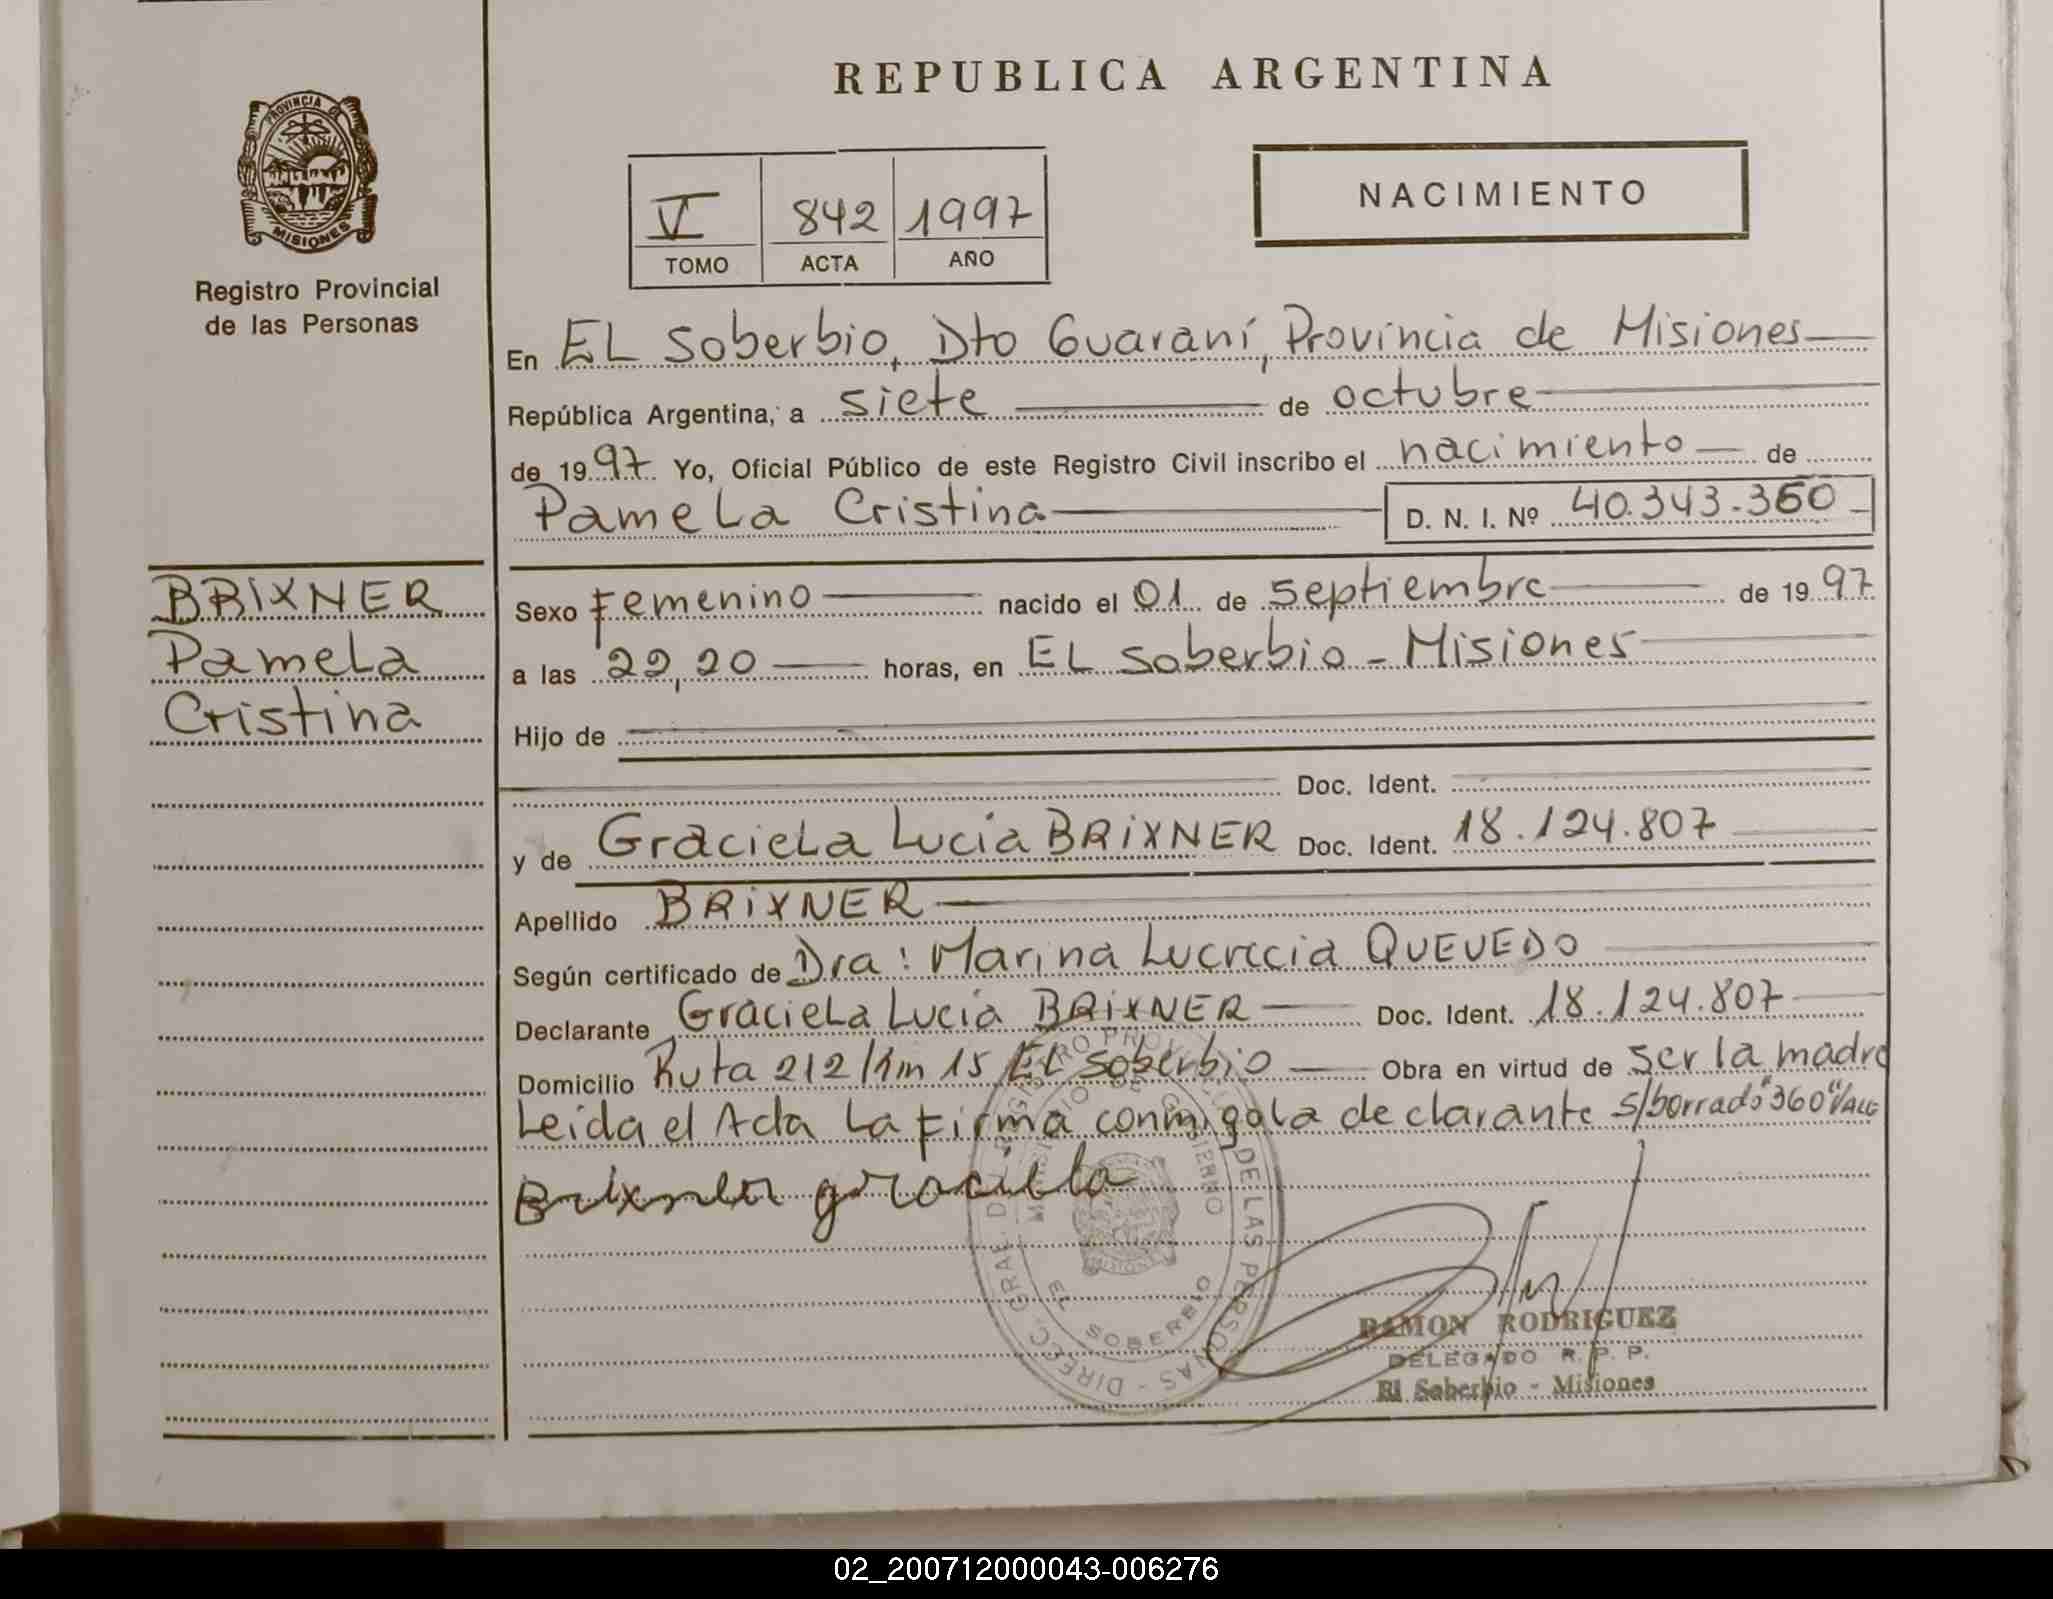 REPUBLICA ARGENTINA
PROVINCIA DE
MISIONES
Registro Provincial
de las Personas
V 842 1997
TOMO ACTA AÑO
NACIMIENTO
En EL Soberbio, Dto Guaraní, Provincia de Misiones
República Argentina, a siete de octubre
de 1997 Yo, Oficial Público de este Registro Civil inscribo el nacimiento de
Pamela Cristina D. N. I. Nº 40.343.360
BRIXNER
Pamela
Cristina
Sexo Femenino nacido el 01 de septiembre de 1997
a las 22,20 horas, en EL Soberbio - Misiones
Hijo de
Doc. Ident.
y de Graciela Lucía BRIXNER Doc. Ident. 18.124.807
Apellido BRIXNER
Según certificado de Dra: Marina Lucrecia QUEVEDO
Declarante Graciela Lucía BRIXNER Doc. Ident. 18.124.807
Domicilio Ruta 212 Km 15 EL Soberbio Obra en virtud de ser la madre
Leida el Acta La Firma conmigo la declarante s/borrado "360" Vale
Brixner graciela
DIRECC. GRAL. DEL REGISTRO PROVINCIAL DE LAS PERSONAS
EL SOBERBIO
RAMON RODRIGUEZ
DELEGADO R. P. P.
El Soberbio - Misiones
02_200712000043-006276